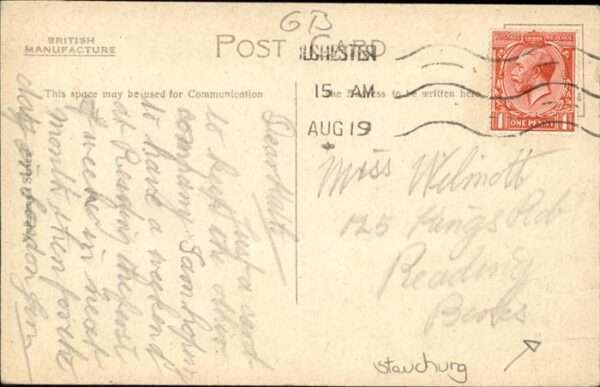 GB
BRITISH
MANUFACTURE
POST CARD
LCHESTER
15 AM
AUG 19
ONE PENNY
This space may be used for Communication
The Address to be written here
Dear
Just a card
to keep
other
company. I am hoping
to have a weekend
at Reading the first
week in next
month, then for the
day in London
Miss Welmott
125 Kings Rd
Reading
Berks
Stauchung